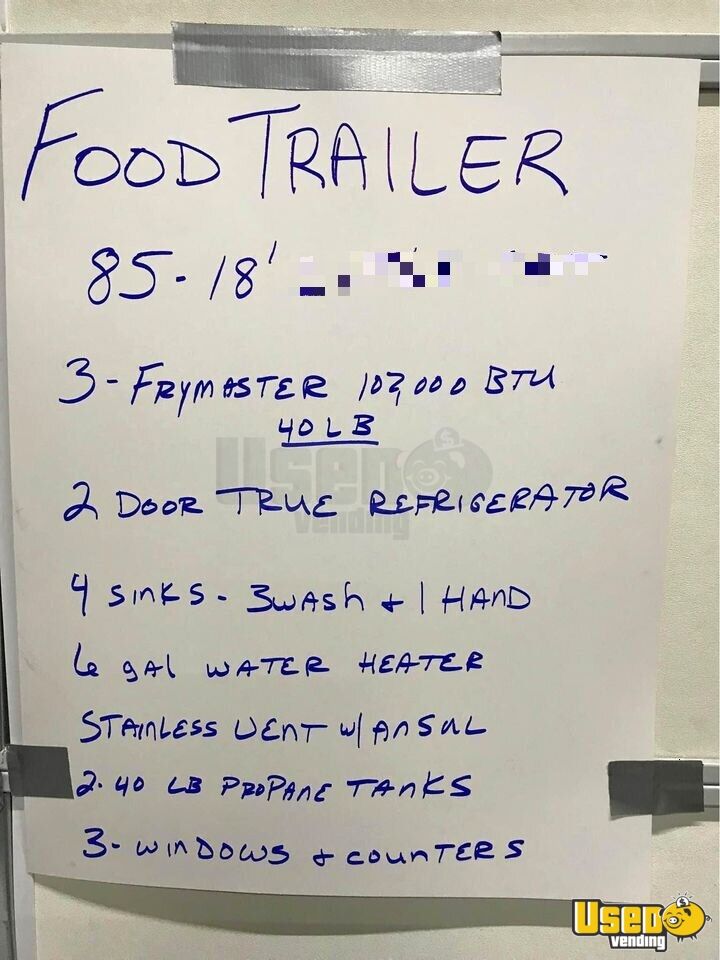 FOOD TRAILER
85-18'
3-FRYMASTER 102,000 BTU
40 LB
USED
Vending
2 DOOR TRUE REFRIGERATOR
4 SINKS- 3WASH & 1 HAND
6 gAL WATER HEATER
STAINLESS VENT W/ANSUL
2-40 LB PROPANE TANKS
3-WINDOWS & COUNTERS
USED
Vending